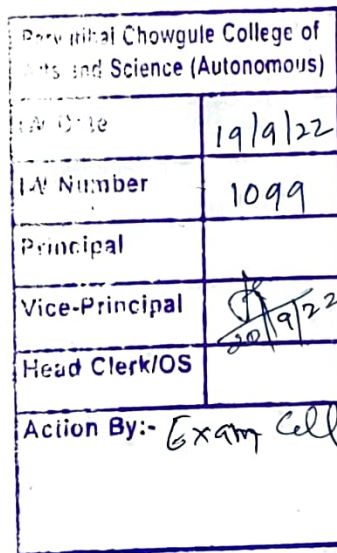 Chowgule College of
and Science (Autonomous)
19/9/22
Number 1099
Principal
Vice-Principal 20/9/22
Head Clerk/OS
Action By:- Exam Cell